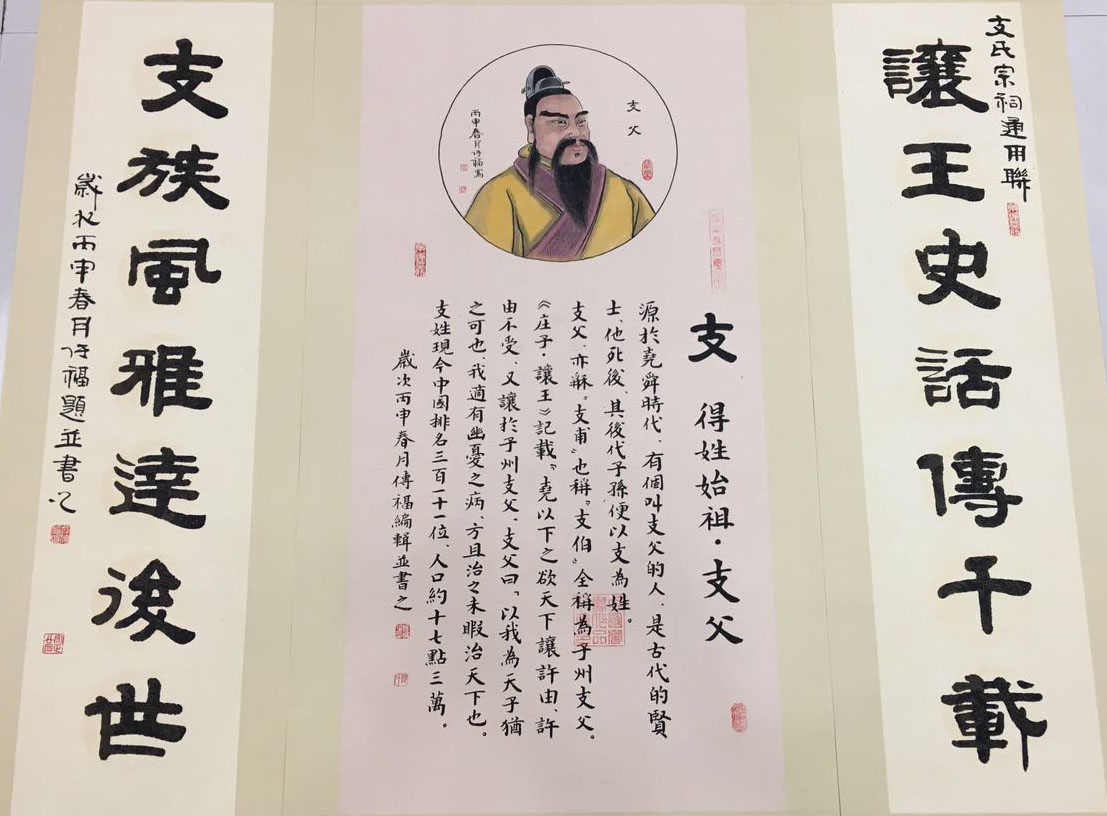 支氏宗祠通用聯
讓王史話傳千載
支父
丙申春月仔福寫
支 得姓始祖·支父
源於堯舜時代、有個叫支父的人、是古代的賢
士、他死後、其後代子孫便以支為姓。
支父、亦稱“支甫”也稱“支伯”全稱為子州支父。
《庄子·讓王》記載“堯以下之欲天下讓許由、許
由不受、又讓於子州支父、支父曰“以我為天子猶
之可也、我適有幽憂之病、方且治之未暇治天下也。
支姓現今中國排名三百一十一位、人口約十七點三萬。
歲次丙申春月傳福編輯並書之
支族風雅達後世
歲次丙申春月仔福題並書